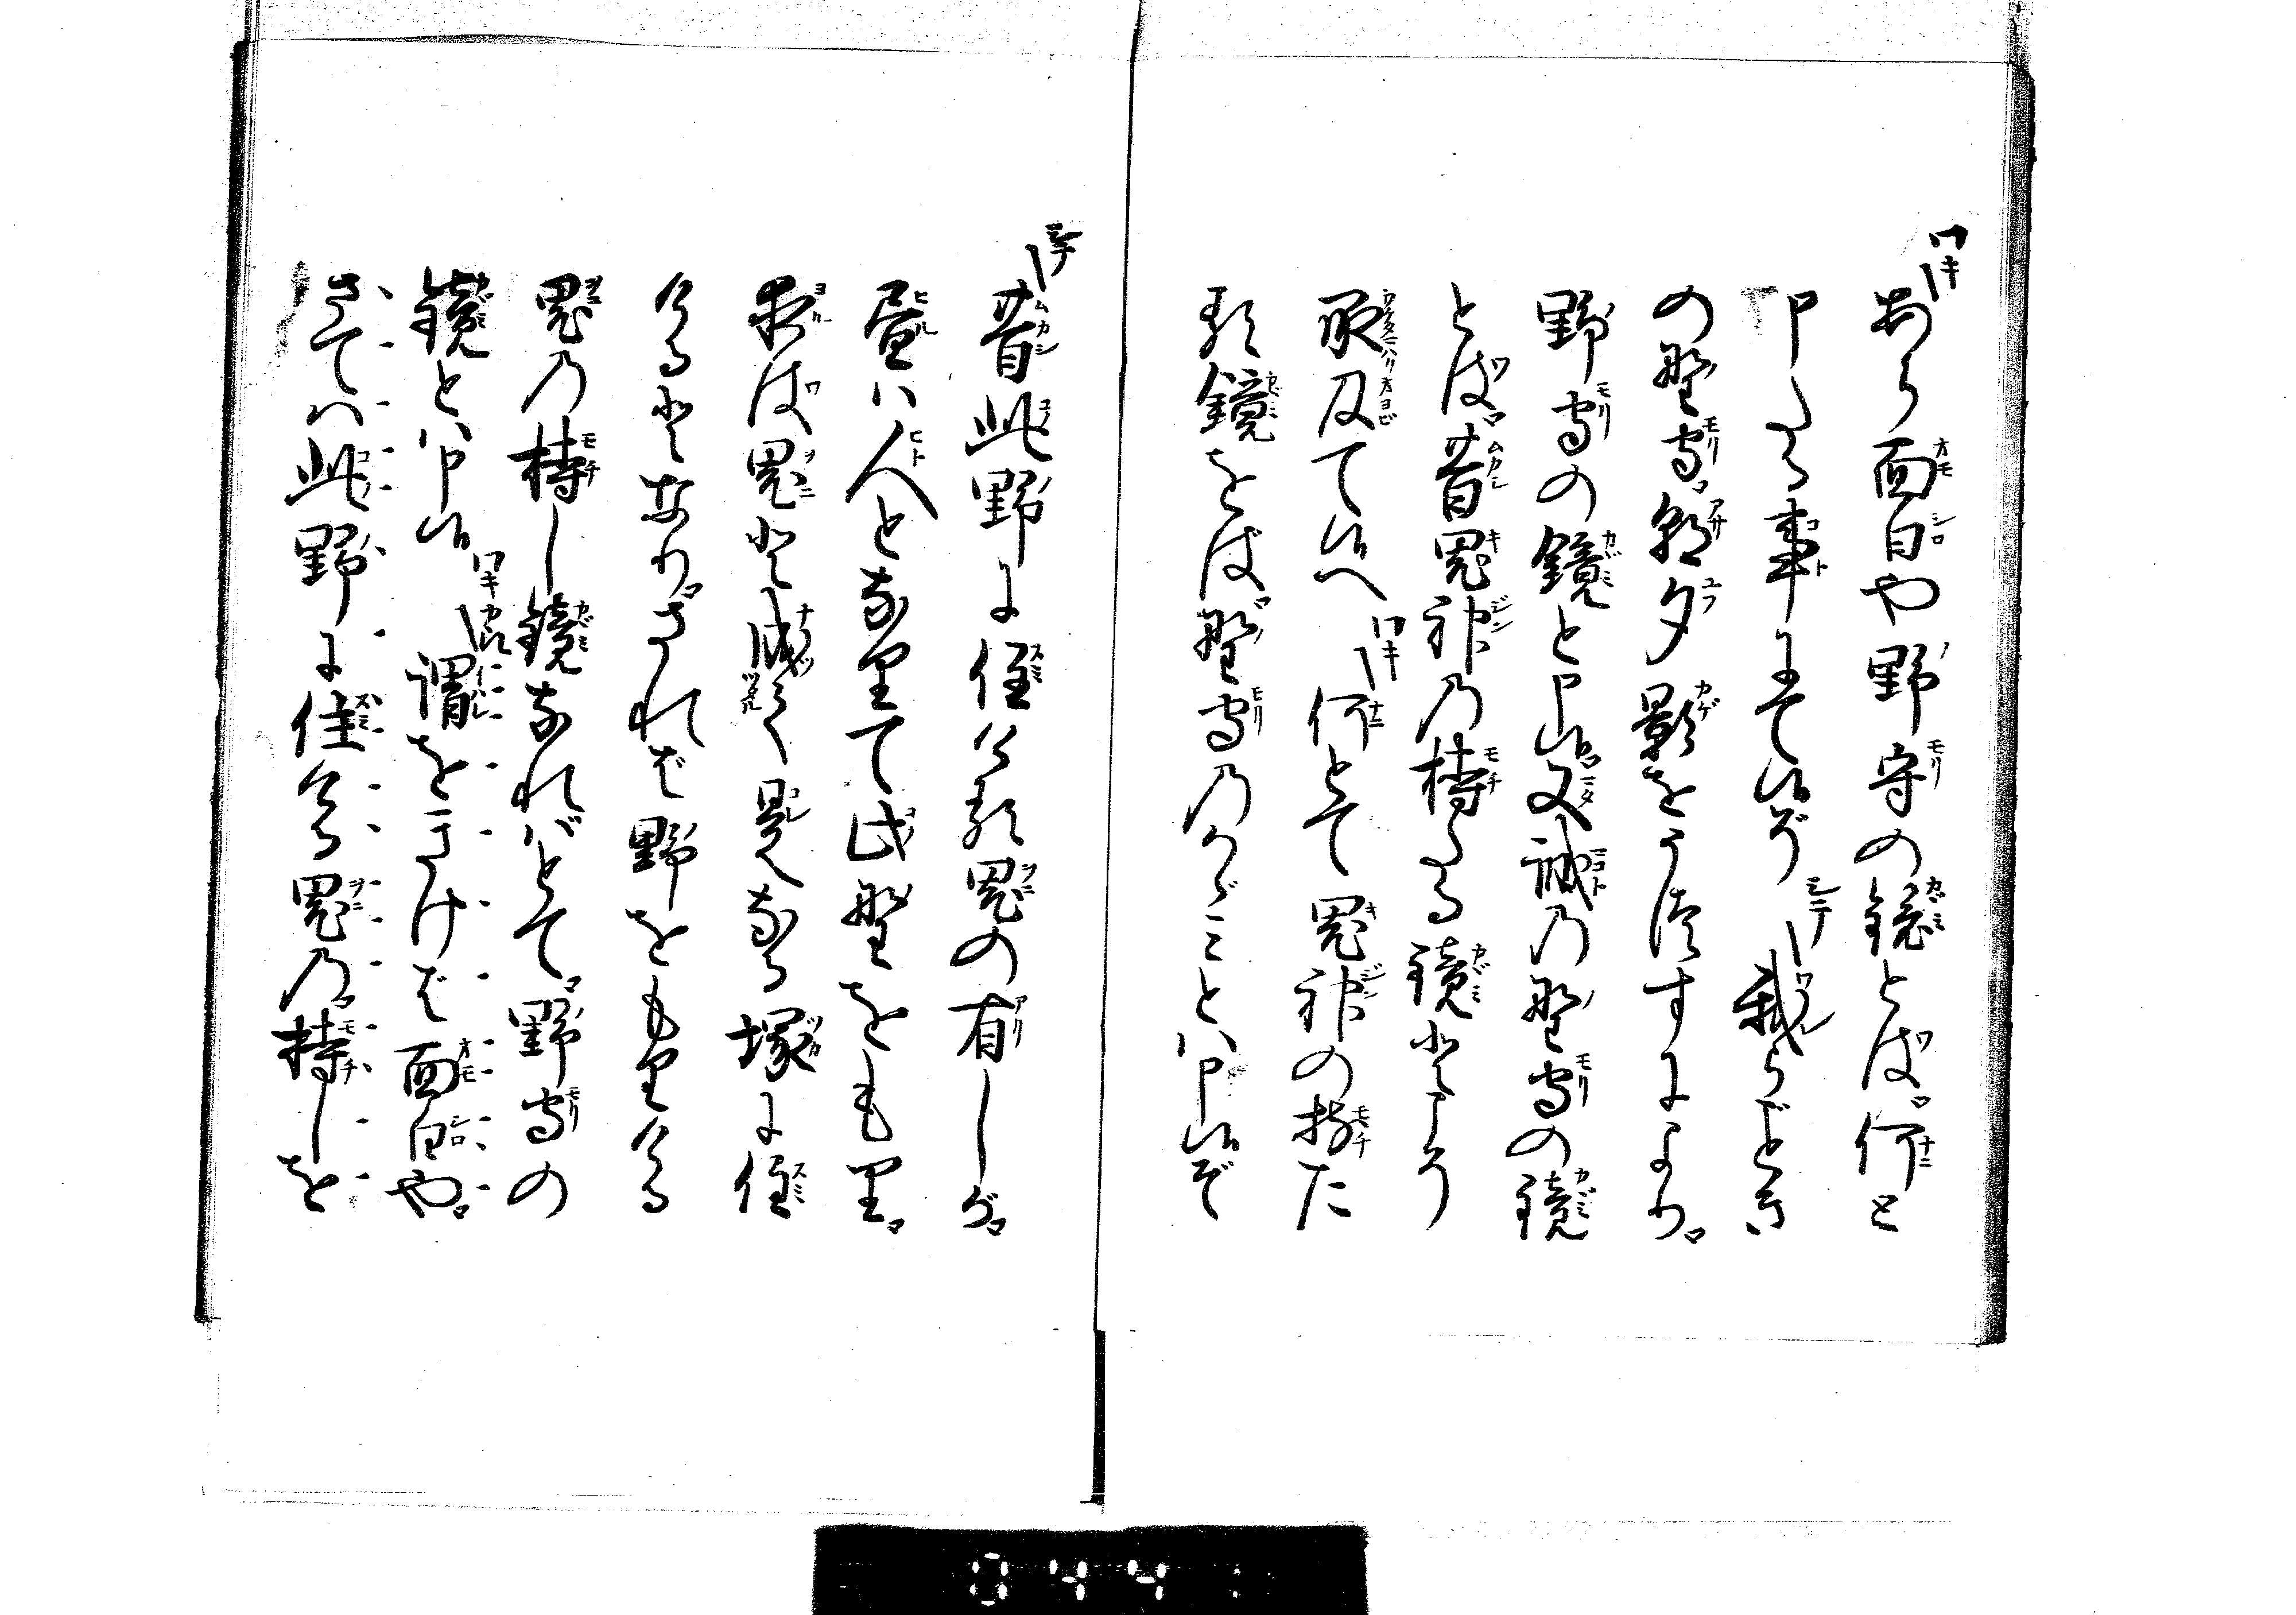 ワキ あら面白や野守の鏡とは何と
申たる事にて候ぞ シテ 我らごとき
の野守朝夕影をうつすにより
野守の鏡と申候又誠の野守の鏡
とは昔鬼神の持たる鏡とこそ
承及て候へ ワキ 何とて鬼神の持た
る鏡をば野守のかゞみとは申候ぞ
シテ 昔此野に住ける鬼の有しが
昼は人となりて此野をもり
夜は鬼と成て是なる塚に住
けるとなりされば野をもりける
鬼の持し鏡なればとて野守の
鏡とは申候 ワキ 謂をきけば面白や
さては此野に住ける鬼の持しを